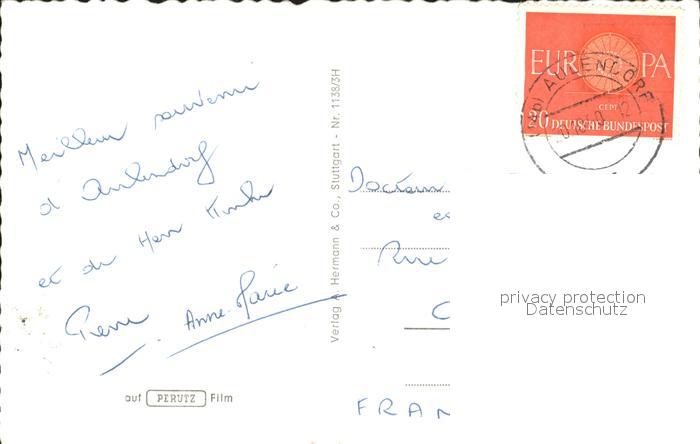 Meilleur souvenir
d'Aulendorf
et de Herr
Pierre Anne-Marie
auf PERUTZ Film
Verlag A. Hermann & Co., Stuttgart - Nr. 1138/3H
EUROPA
CEPT
20 DEUTSCHE BUNDESPOST
AULENDORF
Docteur
et
Rue
C
FRAN
privacy protection
Datenschutz